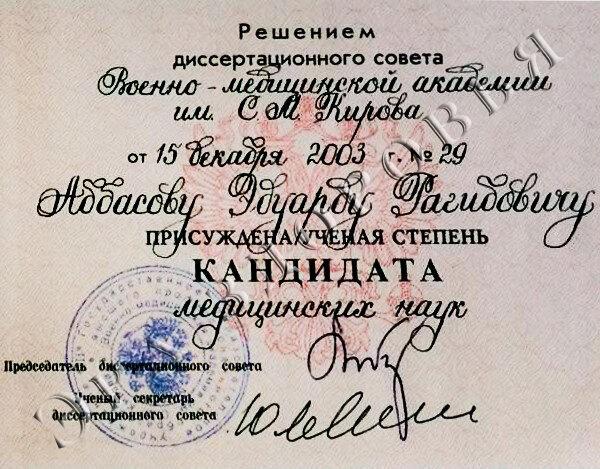 Решением
диссертационного совета
Военно-медицинской академии
им. С.М. Кирова
от 15 декабря 2003 г. № 29
Аббасову Эдуарду Рагибовичу
ПРИСУЖДЕНА УЧЕНАЯ СТЕПЕНЬ
КАНДИДАТА
медицинских наук
Председатель диссертационного совета
Ученый секретарь
диссертационного совета